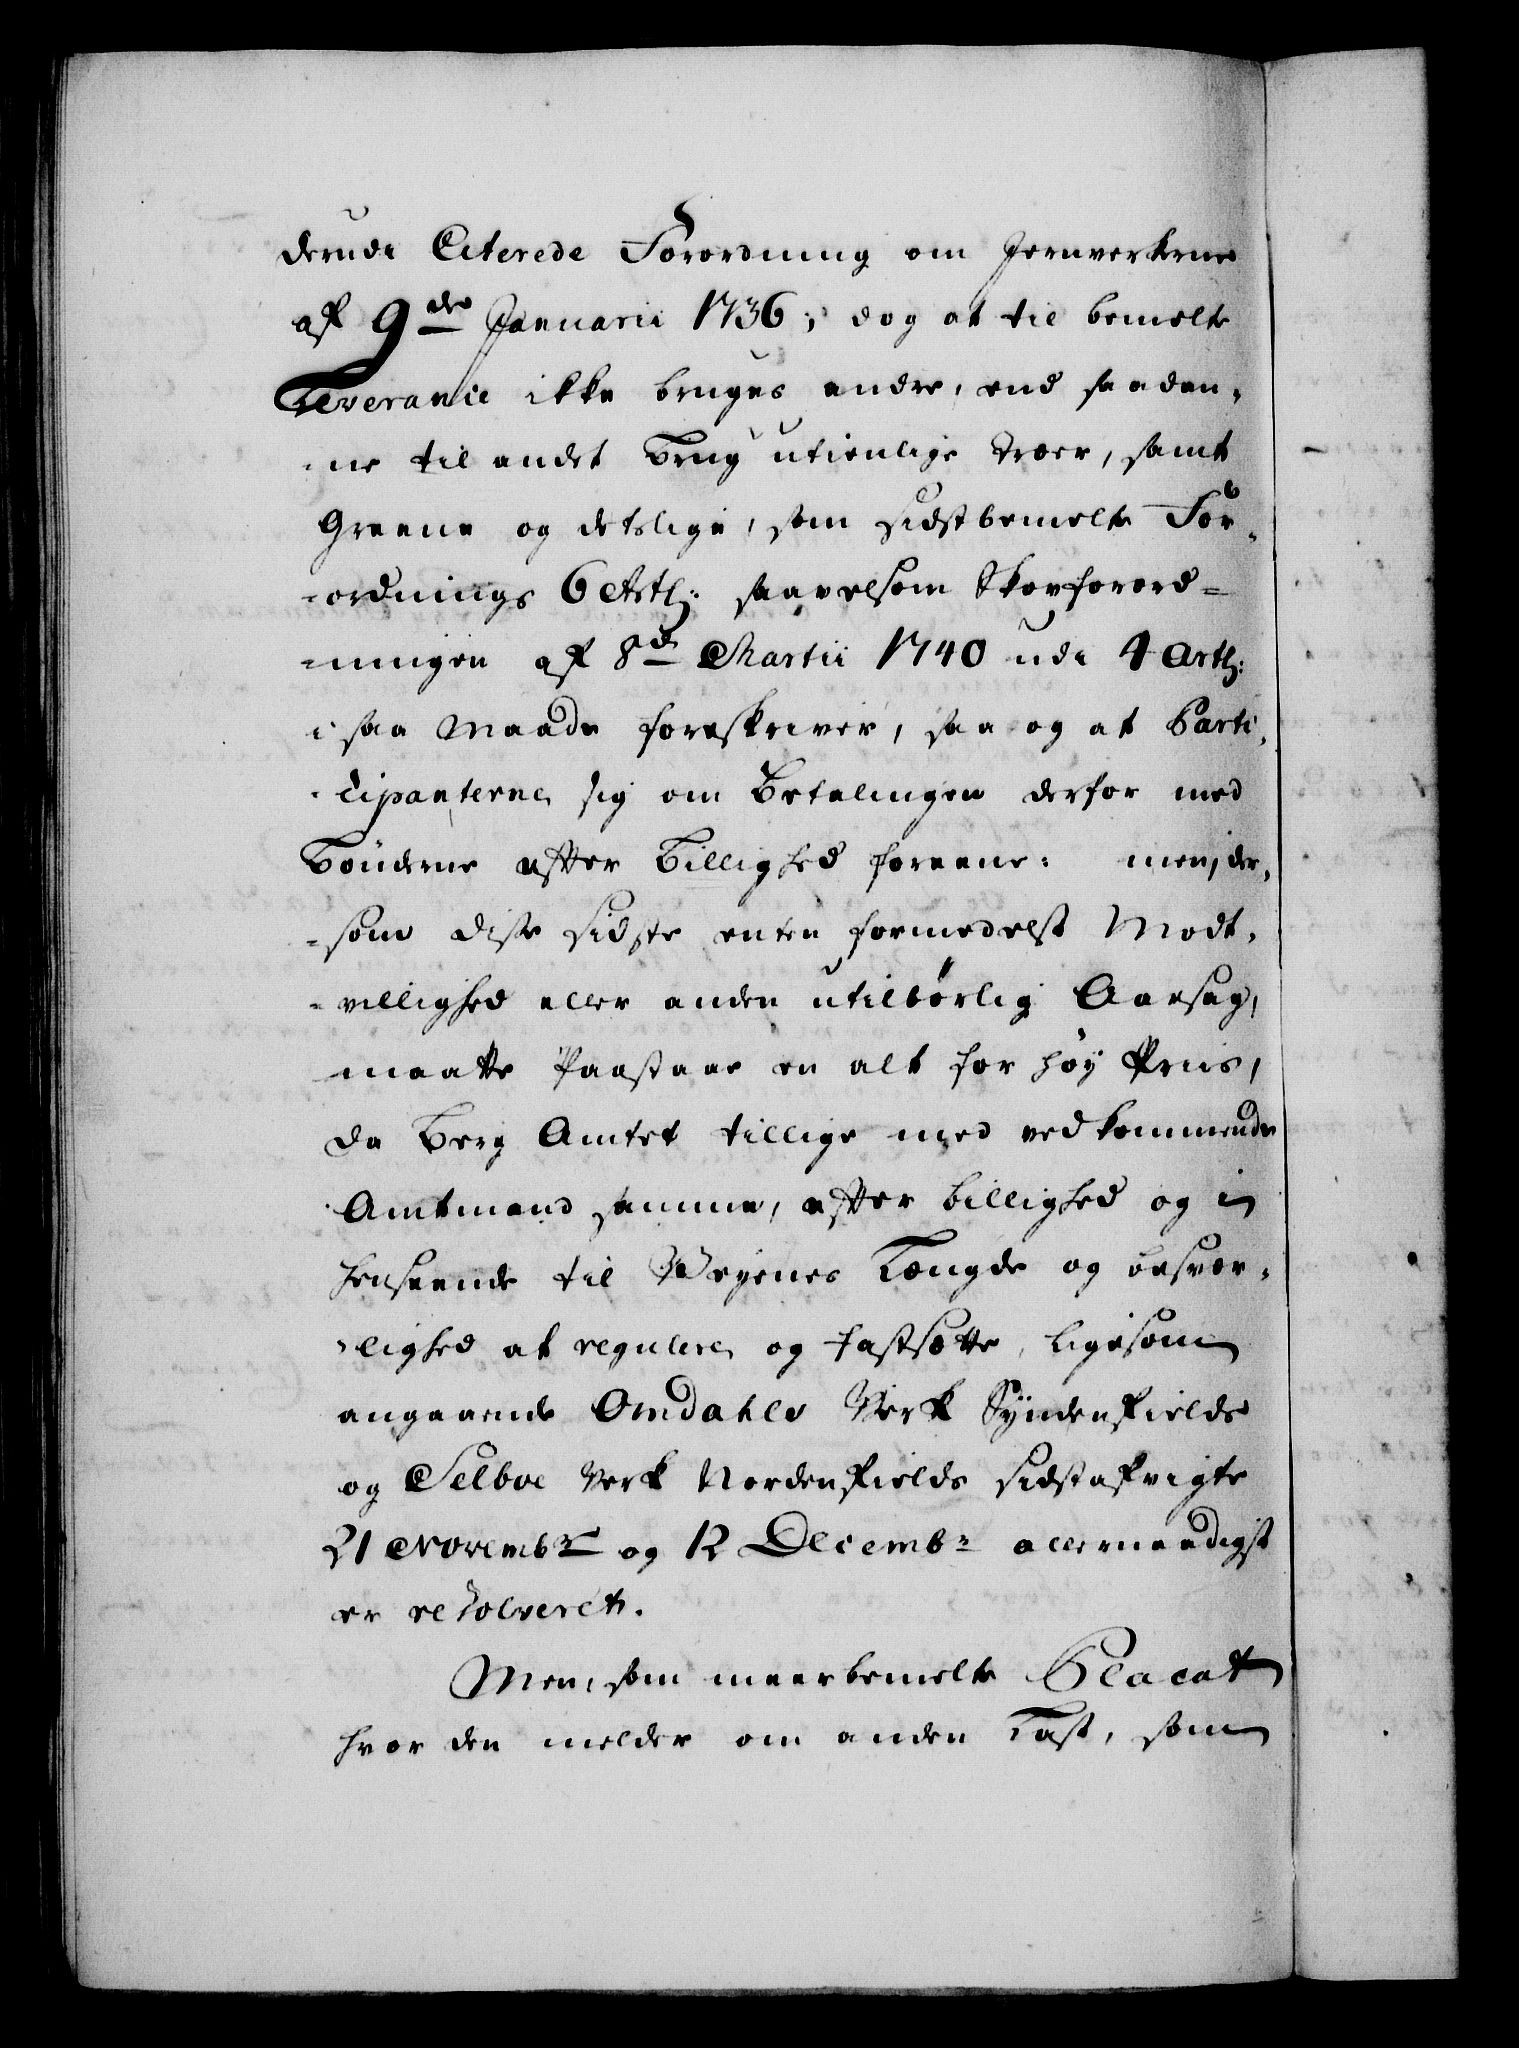 derudi Citerede Forordning om Jernverkerne
af 9de Januarii 1736; dog at til bemelte
Leverance ikke bruges andre, end saadan-
-ne til andet Brug utienlige Træer, samt
Greene og detslige, som sidstbemelte For-
-ordnings 6 Artl: saavelsom Skovforord-
-ningen af 8de Martii 1740 udi 4 Artl:
i saa Maade foreskriver, saa og at Parti-
-cipanterne sig om Betalingen derfor med
Bönderne efter Billighed foreene: men, der-
-som disse sidste enten formedelst Modt-
-villighed eller anden utilbørlig Aarsag,
maatte Paastaae en alt for høy Priis,
da Berg Amtet tillige med vedkommende
Amtmand samme, efter billighed og i
henseende til Veyenes Længde og besvær-
-lighed at regulere og fastsætte, ligesom
angaaende Omdahls Verk Syndenfields
og Selboe Verk Nordenfields sidstafvigte
21 Novembr og 12 Decembr allernaadigst
er resolveret.
Men, som meerbemelte Placat
hvor den melder om anden Last, som